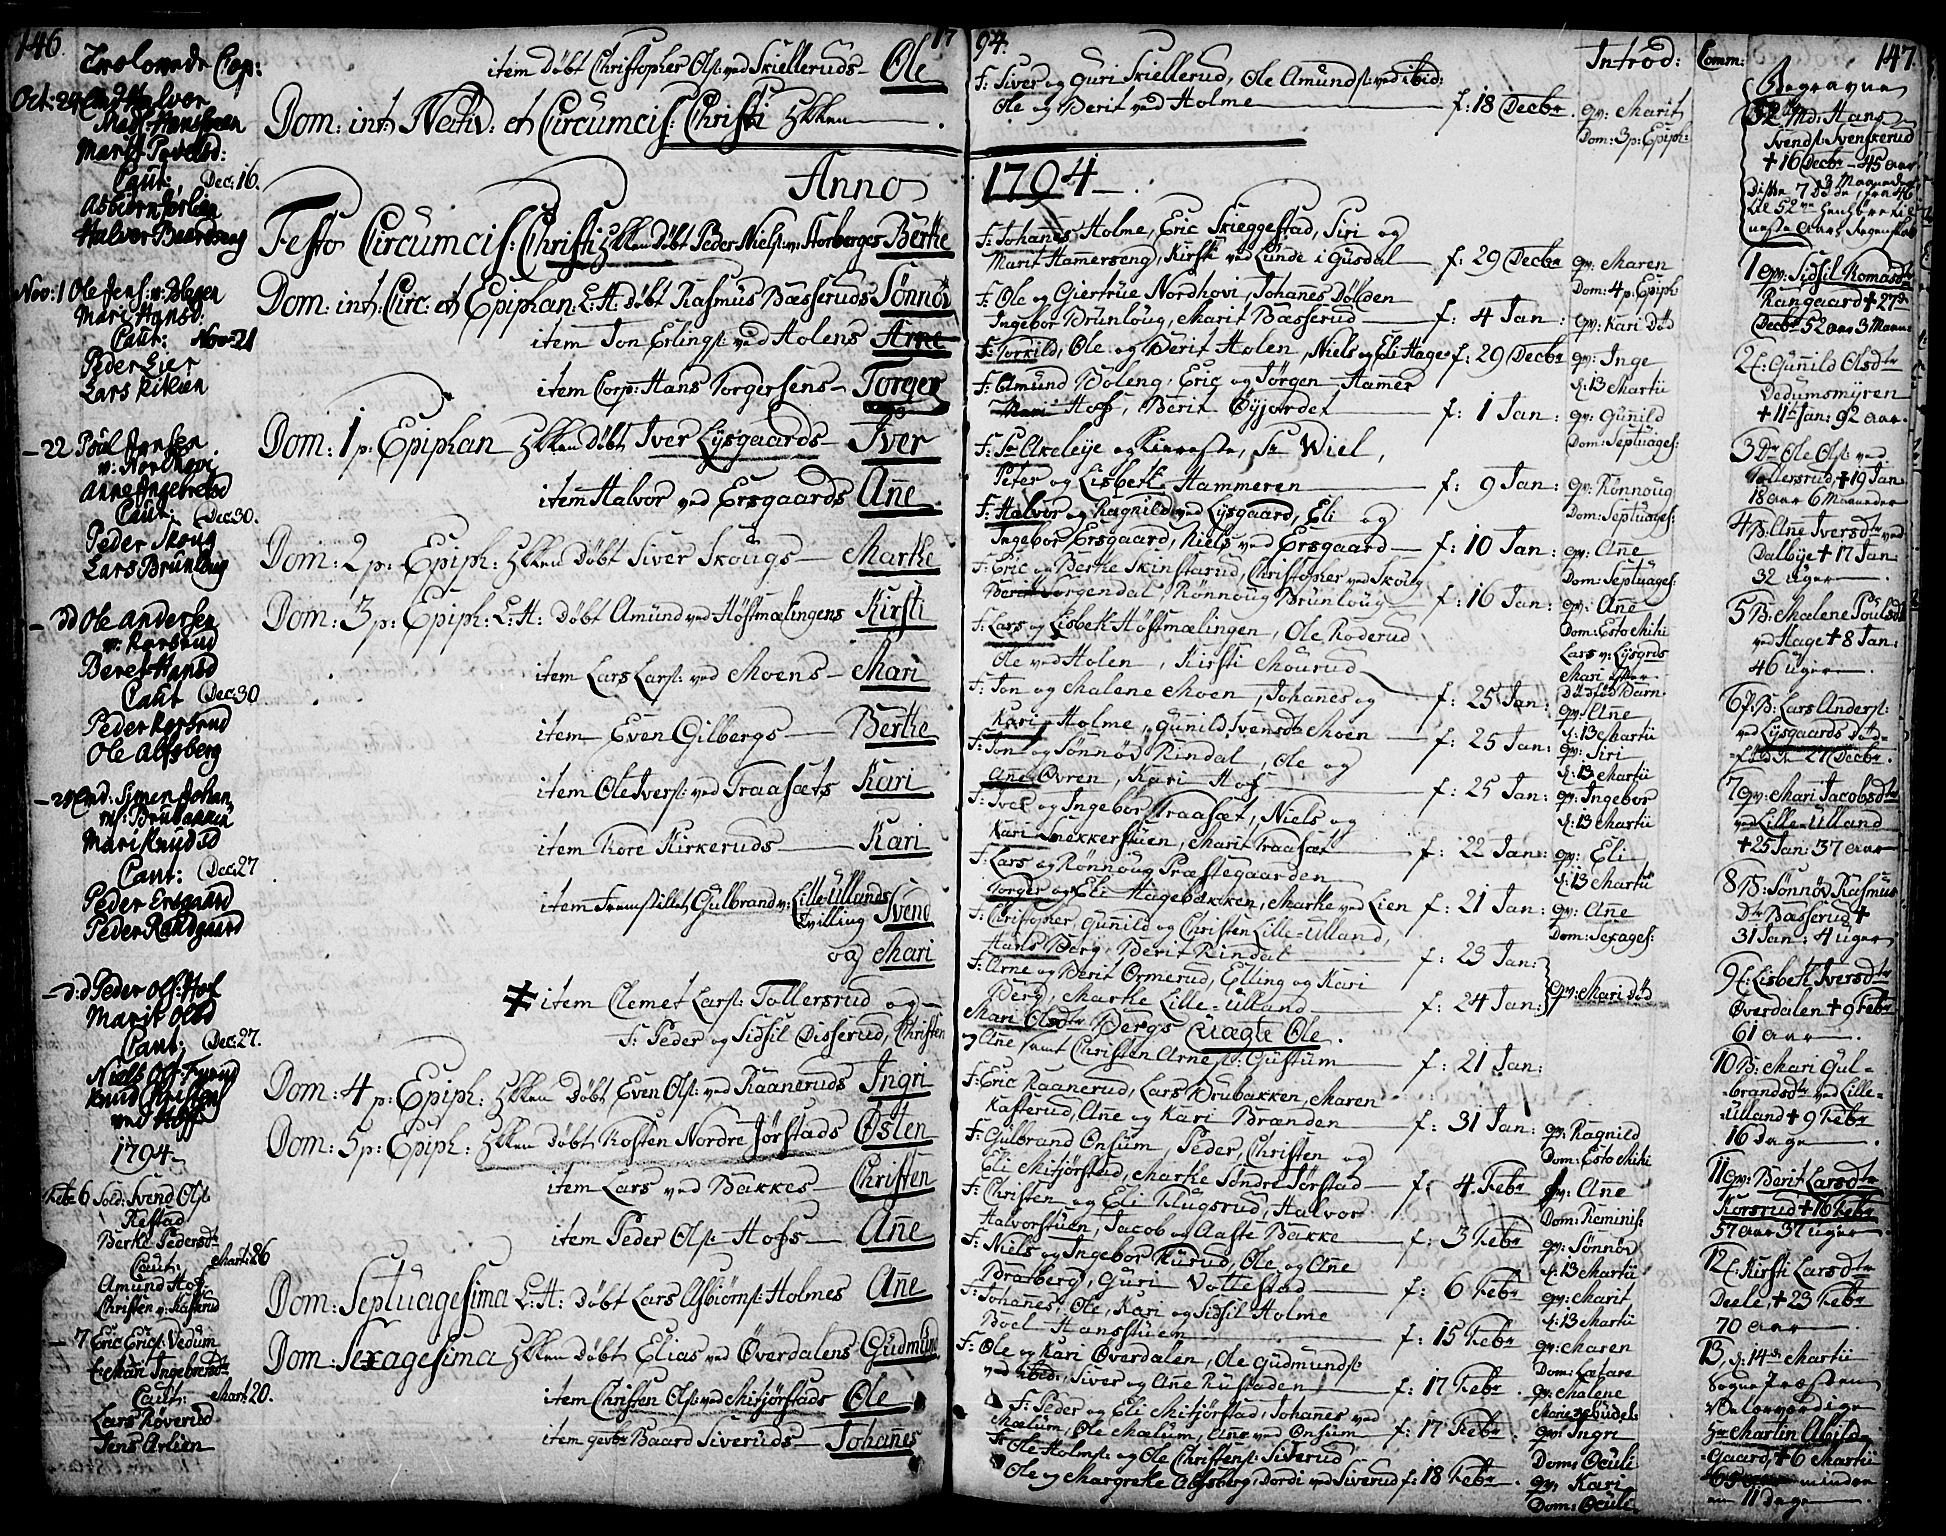 146.
Trolovede Cop:
Oct: 24
Halvor
Mads Hansveen
Marit Povelsd:
Caut: Dec: 16.
Asbiørn Jørlien
Halvor Baardseng
Nov: 1 Ole Jens: v: Hagen
Mari Hansd.
Caut: Nov: 21
Peder Lier
Lars Riklien
- 22 Poul Jensen
v: Nordhovi
Anne Ingebretsd
Caut: Dec: 30.
Peder Skoug
Lars Brünloug
- dd Ole Andersen
v: Korsrud
Beret Hansd
Caut Dec: 30
Peder Korsrud
Ole Alfsberg
Simen Johan
Brubakken
Mari Knudsd
Caut: Dec: 27
Peder Ersgaard
Peder Randgaard
- d:d Peder Ols: Hof
Marit Olsd
Caut; Dec: 27.
Niels Ols:
Knud Christens
ved Hoff
1794
Febr 6 Sold: Svend Ols:
Kestad
Berthe Pedersdtr
Caut: Mart: 26
Amund Hof
Christen v: Kasterud
- 7 Eric Erics: Vedum
Mari Ingebretsdtr
Caut: Mart: 20.
Lars Røverud
Jens Arlien
17
item døbt Christopher Ols: ved Skielleruds — Ole
Dom: int: Nativ: et Circumcis: Christi
Anno
Festo Circumcis: Christi døbt Peder Niels: v: Storberges Berthe
Dom: int: Circ: et Epiphan: L: H: døbt Rasmus Bæsseruds Sønnøv
item Jon Erlings: ved Holens Arne
item Corp: Hans Torgersens — Torger
Dom: 1 p: Epiphan døbt Iver Lÿsgaards — Iver
item Halvor ved Ersgaards Añe
Dom: 2 p: Epiph: døbt Siver Skougs — Marthe
Dom: 3 p: Epiph: L: H: døbt Amund ved Høstmælingens Kirsti
item Lars Lars: ved Moens — Mari
item Even Gilbergs — Berthe
item Ole Ivers: ved Traasæts Kari
item Tore Kirkeruds — Kari
item Fremstillet Gulbrand v: Lille-Ullands
Tvilling Svend
og Mari
item Clemet Lars: Tollersrud og —
F: Peder og Sidsil Disserud, Christen
Dom: 4 p: Epiph: døbt Even Ols: ved Kaaneruds Ingri
Dom: 5 p: Epiph: døbt Kosten Nordre Jørstads Østen
item Lars ved Bakkes — Christen
item Peder Ols: Hofs — Añe
Dom: Septuagesima L: H: døbt Lars Asbiørns: Holmes Añe
Dom: Sexagesima døbt Elias ved Øverdalens Gudmund
item Christen Ols: ved Mitjørstads Ole
item Baard Siveruds — Johanes
94.
F: Siver og Guri Skiellerud, Ole Amunds: ved ibid:
Ole og Berit ved Holme — f: 18 Decbr.
1794.
F: Johanes Holme, Eric Skieggestad, Siri og
Marit Hamerseng, Kirsti ved Lunde i Gusdal — f: 29 Decbr
F: Ole og Giertrüe Nordhovi, Johanes Dølden
Ingebor Brünloug, Marit Bæsserud — f: 4 Jan:
F: Torkild, Ole og Berit Holen, Niels og Eli Hage f: 29 Decbr
F: Amund Boleng, Eric og Jørgen Hamer
Mari Hof, Berit Øyjordet — f: 1 Jan:
F: Sr Akeleÿe og Kiereste, Sr Wiel,
Peter og Lisbeth Hammeren — f: 9 Jan:
F: Halvor og Ragnild ved Lÿsgaard, Eli og
Ingebor Ersgaard, Niels ved Ersgaard — f: 10 Jan:
F: Eric og Berthe Skinstarud, Christopher ved Skoug
Berit Torgendal, Rønnoug Brünloug — f: 16 Jan:
F: Lars og Lisbeth Høstmælingen, Ole Roderud
Ole ved Holen, Kirsti Mourud
F: Jon og Malene Moen, Johanes og f: 25 Jan:
Kari Holme, Gunild Svensdtr Moen — f: 25 Jan:
F: Jon og Sønnøv Rindal, Ole og
Añe Øvren, Kari Hof — f: 25 Jan:
F: Iver og Ingebor Traasæt, Niels og
Kari Snekkerstuen, Marit Traasæt — f: 22 Jan:
F: Lars og Rønnoug Præstegaarden
Torger og Eli Hagebakken, Marthe ved Lien f: 21 Jan:
F: Christopher, Gunild og Christen Lille-Ulland,
Hans Berg, Berit Rindal — f: 23 Jan:
F: Arne og Berit Ormerud, Elling og Kari
Berg, Marthe Lille-Ulland — f: 24 Jan:
Mari Olsdtr Bergs Uægte Ole.
Añe samt Christen Arnes: Gustum — f: 21 Jan:
F: Eric Kaanerud, Lars Brubakken, Maren
Kasterud, Ane og Kari Brænden — f: 31 Jan:
F: Gulbrand Onsum, Peder, Christen og
Eli Mitjørstad, Marthe Søndre Jørstad — f: 4 Febr
F: Christen og Eli Klugsrud, Halvor
Halvorstuen, Jacob og Aaste Bakke — f: 3 Febr
F: Niels og Ingebor Rürud, Ole og Añe
Bratberg, Guri Vottestad — f: 6 Febr
F: Johanes, Ole, Kari og Sidsil Holme
Boel Hansstuen — f: 15 Febr
F: Ole og Kari Øverdalen, Ole Gudmunds:
ved ibid:, Siver og Añe Rustaden — f: 17 Febr.
F: Peder og Eli Mitjørstad, Johanes ved
Mælum, Ole Mælum, Ane ved Onsum — f: 17 Febr.
F: Ole Holms: og Ole Christens: Siverud
Ole og Margrethe Alfsberg, Dordi ved Siverud f: 18 Febr.
Introd:
qv: Marit
Dom: 3 p: Epiph:
qv: Maren
Dom: 4 p: Epiph:
qv: Kari Död
qv: Inge
d: 13 Martii
qv: Gunild
Dom: Septuages:
qv: Rønnoug
Dom: Septuages:
qv: Añe
Dom: Septuages:
qv: Añe
Dom: Esto Mihi
Lars v: Lÿsgrds
Mari
dødfød Barn
qv: Añe
d: 13 Martii
qv: Siri
d: 13 Martii
qv: Ingebor
d: 13 Martii
qv: Eli
d: 13 Martii
qv: Añe
Dom: Sexages:
qv: Mari Död
qv: Ragnild
Dom: Esto Mihi
qv: Añe
Dom: Reminis:
qv: Sønnøv
d: 13 Martii
qv: Marit
d: 13 Martii
qv: Maren
Dom: Lætare
qv: Malene
qv: Ingri
Dom: Oculi
qv: Kari
Dom: Oculi
Comm:
147.
Begravne
52 Hans
Svends: Svenskerud
+ 16 Decbr — 45 aar
3 Maaneder
Disse 7 Døde, fra 46
til 52
neste Aars Regenskab
1 qv: Sidsil Romasdtr
Rangaard + 27de
Decbr 52 aar 3 Maan:
2 E: Gunild Olsdtr
Dedumsmÿren
+ 11te Jan: 92 aar.
3 Dr Ole Ols: ved
Tollersrud, + 19 Jan
18 aar 6 Maaneder
4 B: Ane Iversdtr ved
Dalbÿe + 17 Jan:
32 uger
5 B: Malene Poulsdtr
ved Hage + 8 Jan:
46 uger
6 B: Lars Anders:
ved Lÿsgaards Död-
fød 27 Decbr.
7 qv: Mari Jacobsdtr
ved Lille-Ulland
+ 25 Jan: 37 aar
8 B: Sønnøv Rasmus
Dtr Bæsserud +
31 Jan: 4 uger
9 E: Lisbeth Iversdtr
Øverdalen + 9 Febr
61 aar
10 B: Mari Gul-
brandsdtr ved Lille-
Ulland + 9 Febr
16 Dage
11 qv: Berit Larsdtr
Korsrud + 16 Febr
57 aar 37 uger
12 E: Kirsti Larsdtr
Deele, + 23 Febr
70 aar
13, d: 14de Martii
Sogne Præsten
Velærværdige
Hr Martin Abild-
Gaard, + 6 Martii
minder
en 11 dage